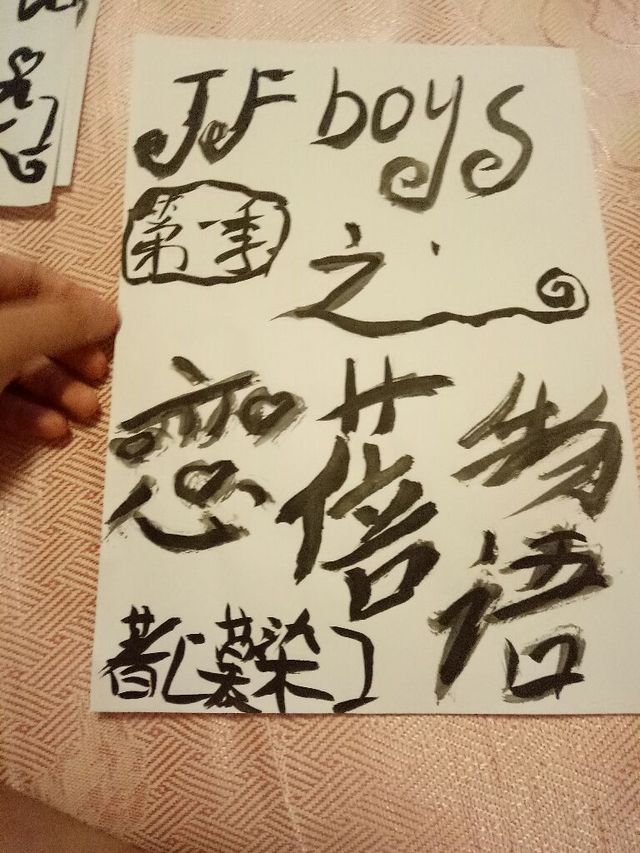 JF boys
第一季
之
恋蓓物语
著[慕染]